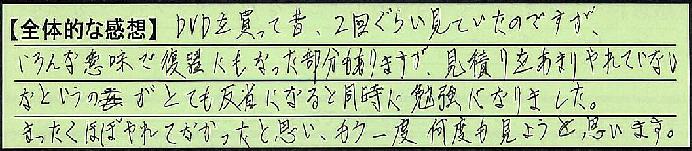 【全体的な感想】DVDを買って昔、2回ぐらい見ていたのですが、
いろんな意味で復習にもなった部分もありますが、見積りをあまりやれていない
なというのがとても反省になると同時に勉強になりました。
まったくほぼやれてなかったと思い、もう一度何度も見ようと思います。